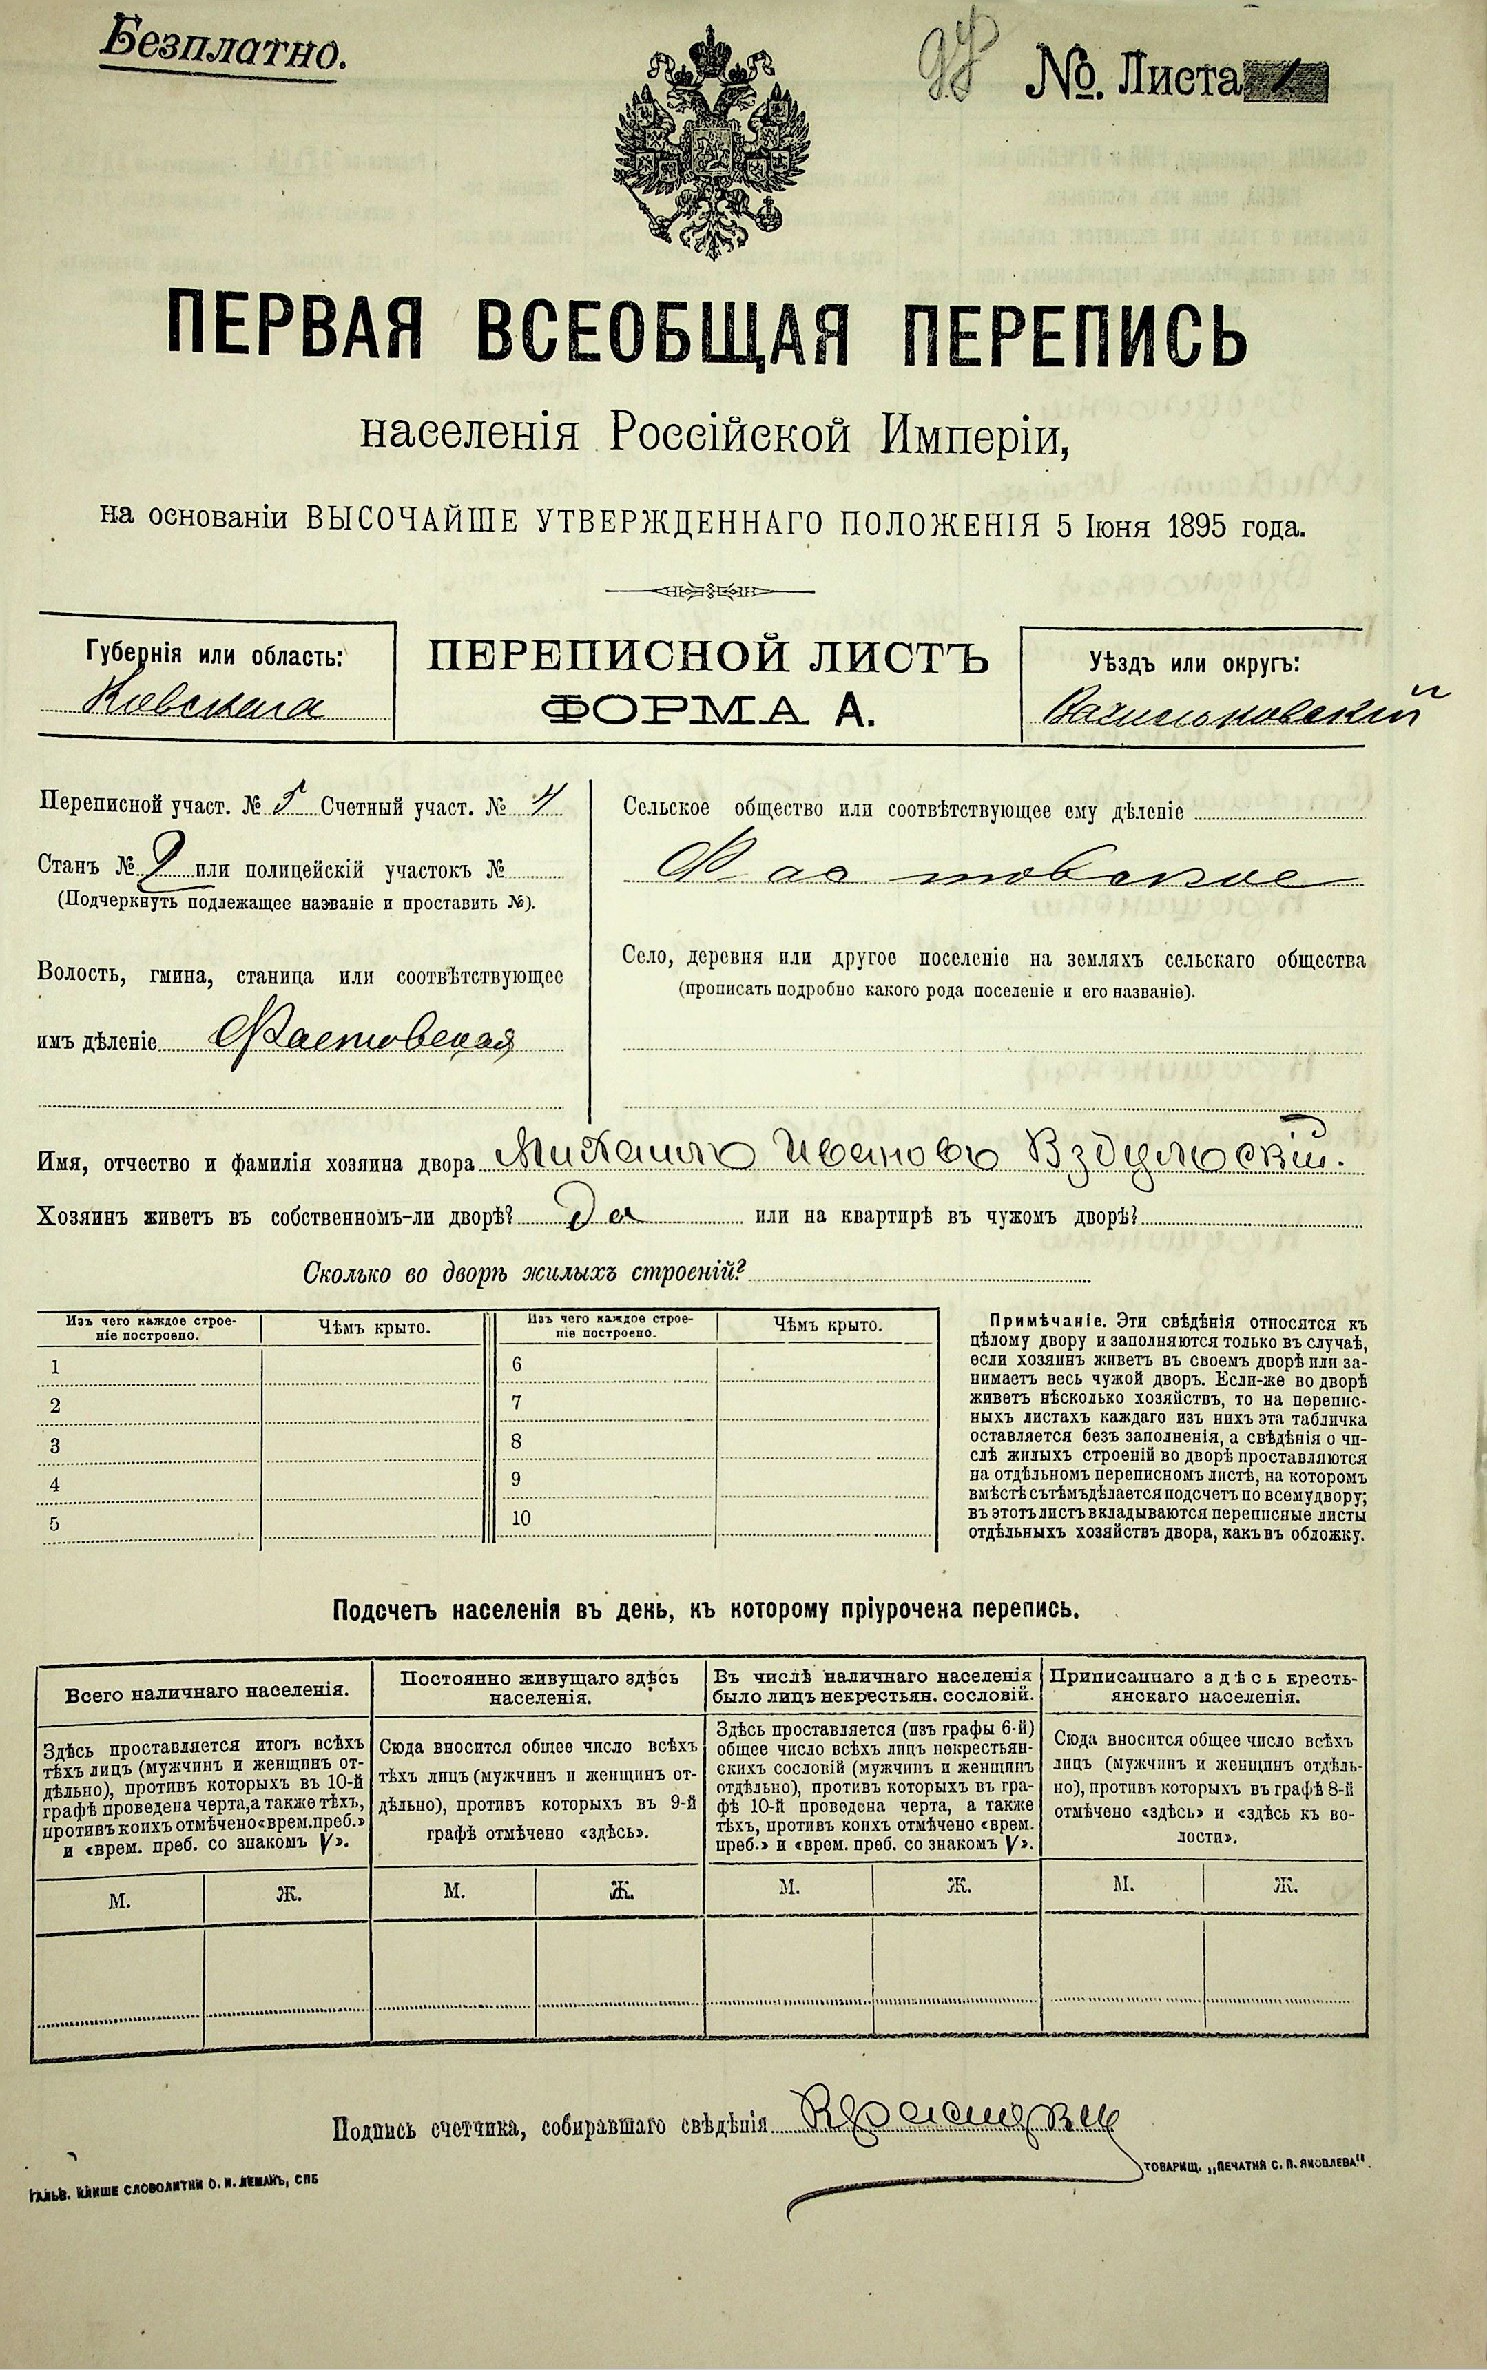 Безплатно.
№. Листа
ПЕРВАЯ ВСЕОБЩАЯ ПЕРЕПИСЬ
населенія Россійской Имперіи,
на основаніи ВЫСОЧАЙШЕ УТВЕРЖДЕННАГО ПОЛОЖЕНІЯ 5 Іюня 1895 года.
Губернія или область:
Кіевская
ПЕРЕПИСНОЙ ЛИСТЪ
ФОРМА А.
Уѣздъ или округъ:
Васильковскій
Переписной участ. № 5 Счетный участ. № 4
Станъ № 2 или полицейскій участокъ №
(Подчеркнуть подлежащее названіе и проставить №).
Волость, гмина, станица или соотвѣтствующее
имъ дѣленіе Фастовская
Сельское общество или соотвѣтствующее ему дѣленіе
Фастовское
Село, деревня или другое поселеніе на земляхъ сельскаго общества
(прописать подробно какого рода поселеніе и его названіе).
Имя, отчество и фамилія хозяина двора Михаилъ Ивановъ Вздульскій.
Хозяинъ живетъ въ собственномъ-ли дворѣ? Да или на квартирѣ въ чужомъ дворѣ?
Сколько во дворѣ жилыхъ строеній?
Изъ чего каждое строе-
ніе построено.
Чѣмъ крыто.
1
2
3
4
5
Изъ чего каждое строе-
ніе построено.
Чѣмъ крыто.
6
7
8
9
10
Примѣчаніе. Эти свѣдѣнія относятся къ
цѣлому двору и заполняются только въ случаѣ,
если хозяинъ живетъ въ своемъ дворѣ или за-
нимаетъ весь чужой дворъ. Если-же во дворѣ
живетъ нѣсколько хозяйствъ, то на перепис-
ныхъ листахъ каждаго изъ нихъ эта табличка
оставляется безъ заполненія, а свѣдѣнія о чи-
слѣ жилыхъ строеній во дворѣ проставляются
на отдѣльномъ переписномъ листѣ, на которомъ
вмѣстѣ съ тѣмъ дѣлается подсчетъ по всему двору;
въ этотъ листъ вкладываются переписные листы
отдѣльныхъ хозяйствъ двора, какъ въ обложку.
Подсчетъ населенія въ день, къ которому пріурочена перепись.
Всего наличнаго населенія.
Здѣсь проставляется итогъ всѣхъ
тѣхъ лицъ (мужчинъ и женщинъ от-
дѣльно), противъ которыхъ въ 10-й
графѣ проведена черта, а также тѣхъ,
противъ коихъ отмѣчено «врем. преб.»
и «врем. преб. со знакомъ V».
М. Ж.
Постоянно живущаго здѣсь
населенія.
Сюда вносится общее число всѣхъ
тѣхъ лицъ (мужчинъ и женщинъ от-
дѣльно), противъ которыхъ въ 9-й
графѣ отмѣчено «здѣсь».
М. Ж.
Въ числѣ наличнаго населенія
было лицъ некрестьян. сословій.
Здѣсь проставляется (изъ графы 6-й)
общее число всѣхъ лицъ некрестьян-
скихъ сословій (мужчинъ и женщинъ
отдѣльно), противъ которыхъ въ гра-
фѣ 10-й проведена черта, а также
тѣхъ, противъ коихъ отмѣчено «врем.
преб.» и «врем. преб. со знакомъ V».
М. Ж.
Приписаннаго здѣсь кресть-
янскаго населенія.
Сюда вносится общее число всѣхъ
лицъ (мужчинъ и женщинъ отдѣль-
но), противъ которыхъ въ графѣ 8-й
отмѣчено «здѣсь» и «здѣсь къ во-
лости».
М. Ж.
Подпись счетчика, собиравшаго свѣдѣнія
ГАЛЬВ. КЛИШЕ СЛОВОЛИТНИ О. И. ЛЕМАНЪ, СПБ
ТОВАРИЩ. „ПЕЧАТНЯ С. П. ЯКОВЛЕВА".